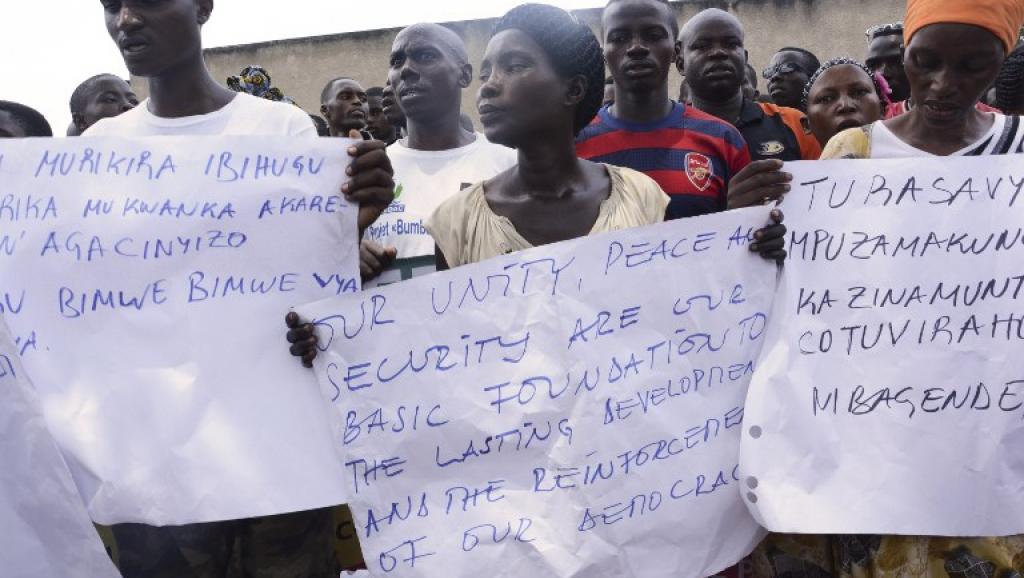 MURIKIRA IBIHUGU
RIKA MU KWANKA AKARE-
N' AGACINYIZO
U BIMWE BIMWE VYA
YA.
Projet «Bumb
OUR UNITY, PEACE A
SECURITY ARE OUR
BASIC FOUNDATION TO
THE LASTING DEVELOPMEN
AND THE REINFORCEME
OF OUR DEMOCRAC
Arsenal
TURASAVY
MPUZAMAKUNG
KAZINAMUNT
COTUVIRAHO
MBAGENDE